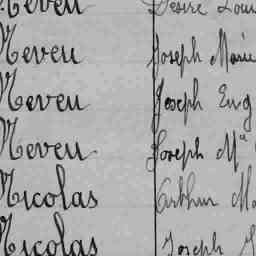 Neveu Désiré Loui
Neveu Joseph Marie
Neveu Joseph Eug
Neveu Joseph Mª
Nicolas Arthur Ma
Nicolas Joseph